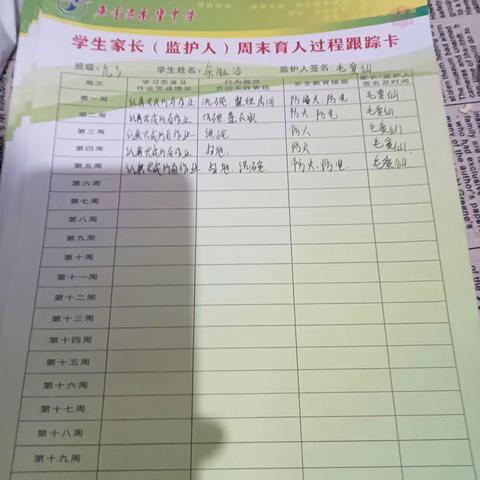 学生家长（监护人）周末育人过程跟踪卡
班级：九3 学生姓名： 监护人签名：毛爱仙
周次 学习态度及作业完成情况 行为规范劳动实践表现 安全教育措施 家长/监护人签名及时间
第一周 认真完成所有作业 洗碗 整理房间 防溺水 防电 毛爱仙
第二周 认真完成所有作业 洗碗 防火 防电 毛爱仙
第三周 认真完成所有作业 洗碗 防火 毛爱仙
第四周 认真完成所有作业 扫地 防火 毛爱仙
第五周 认真完成所有作业 扫地、洗碗 防火、防电 毛爱仙
第六周
第七周
第八周
第九周
第十周
第十一周
第十二周
第十三周
第十四周
第十五周
第十六周
第十七周
第十八周
第十九周